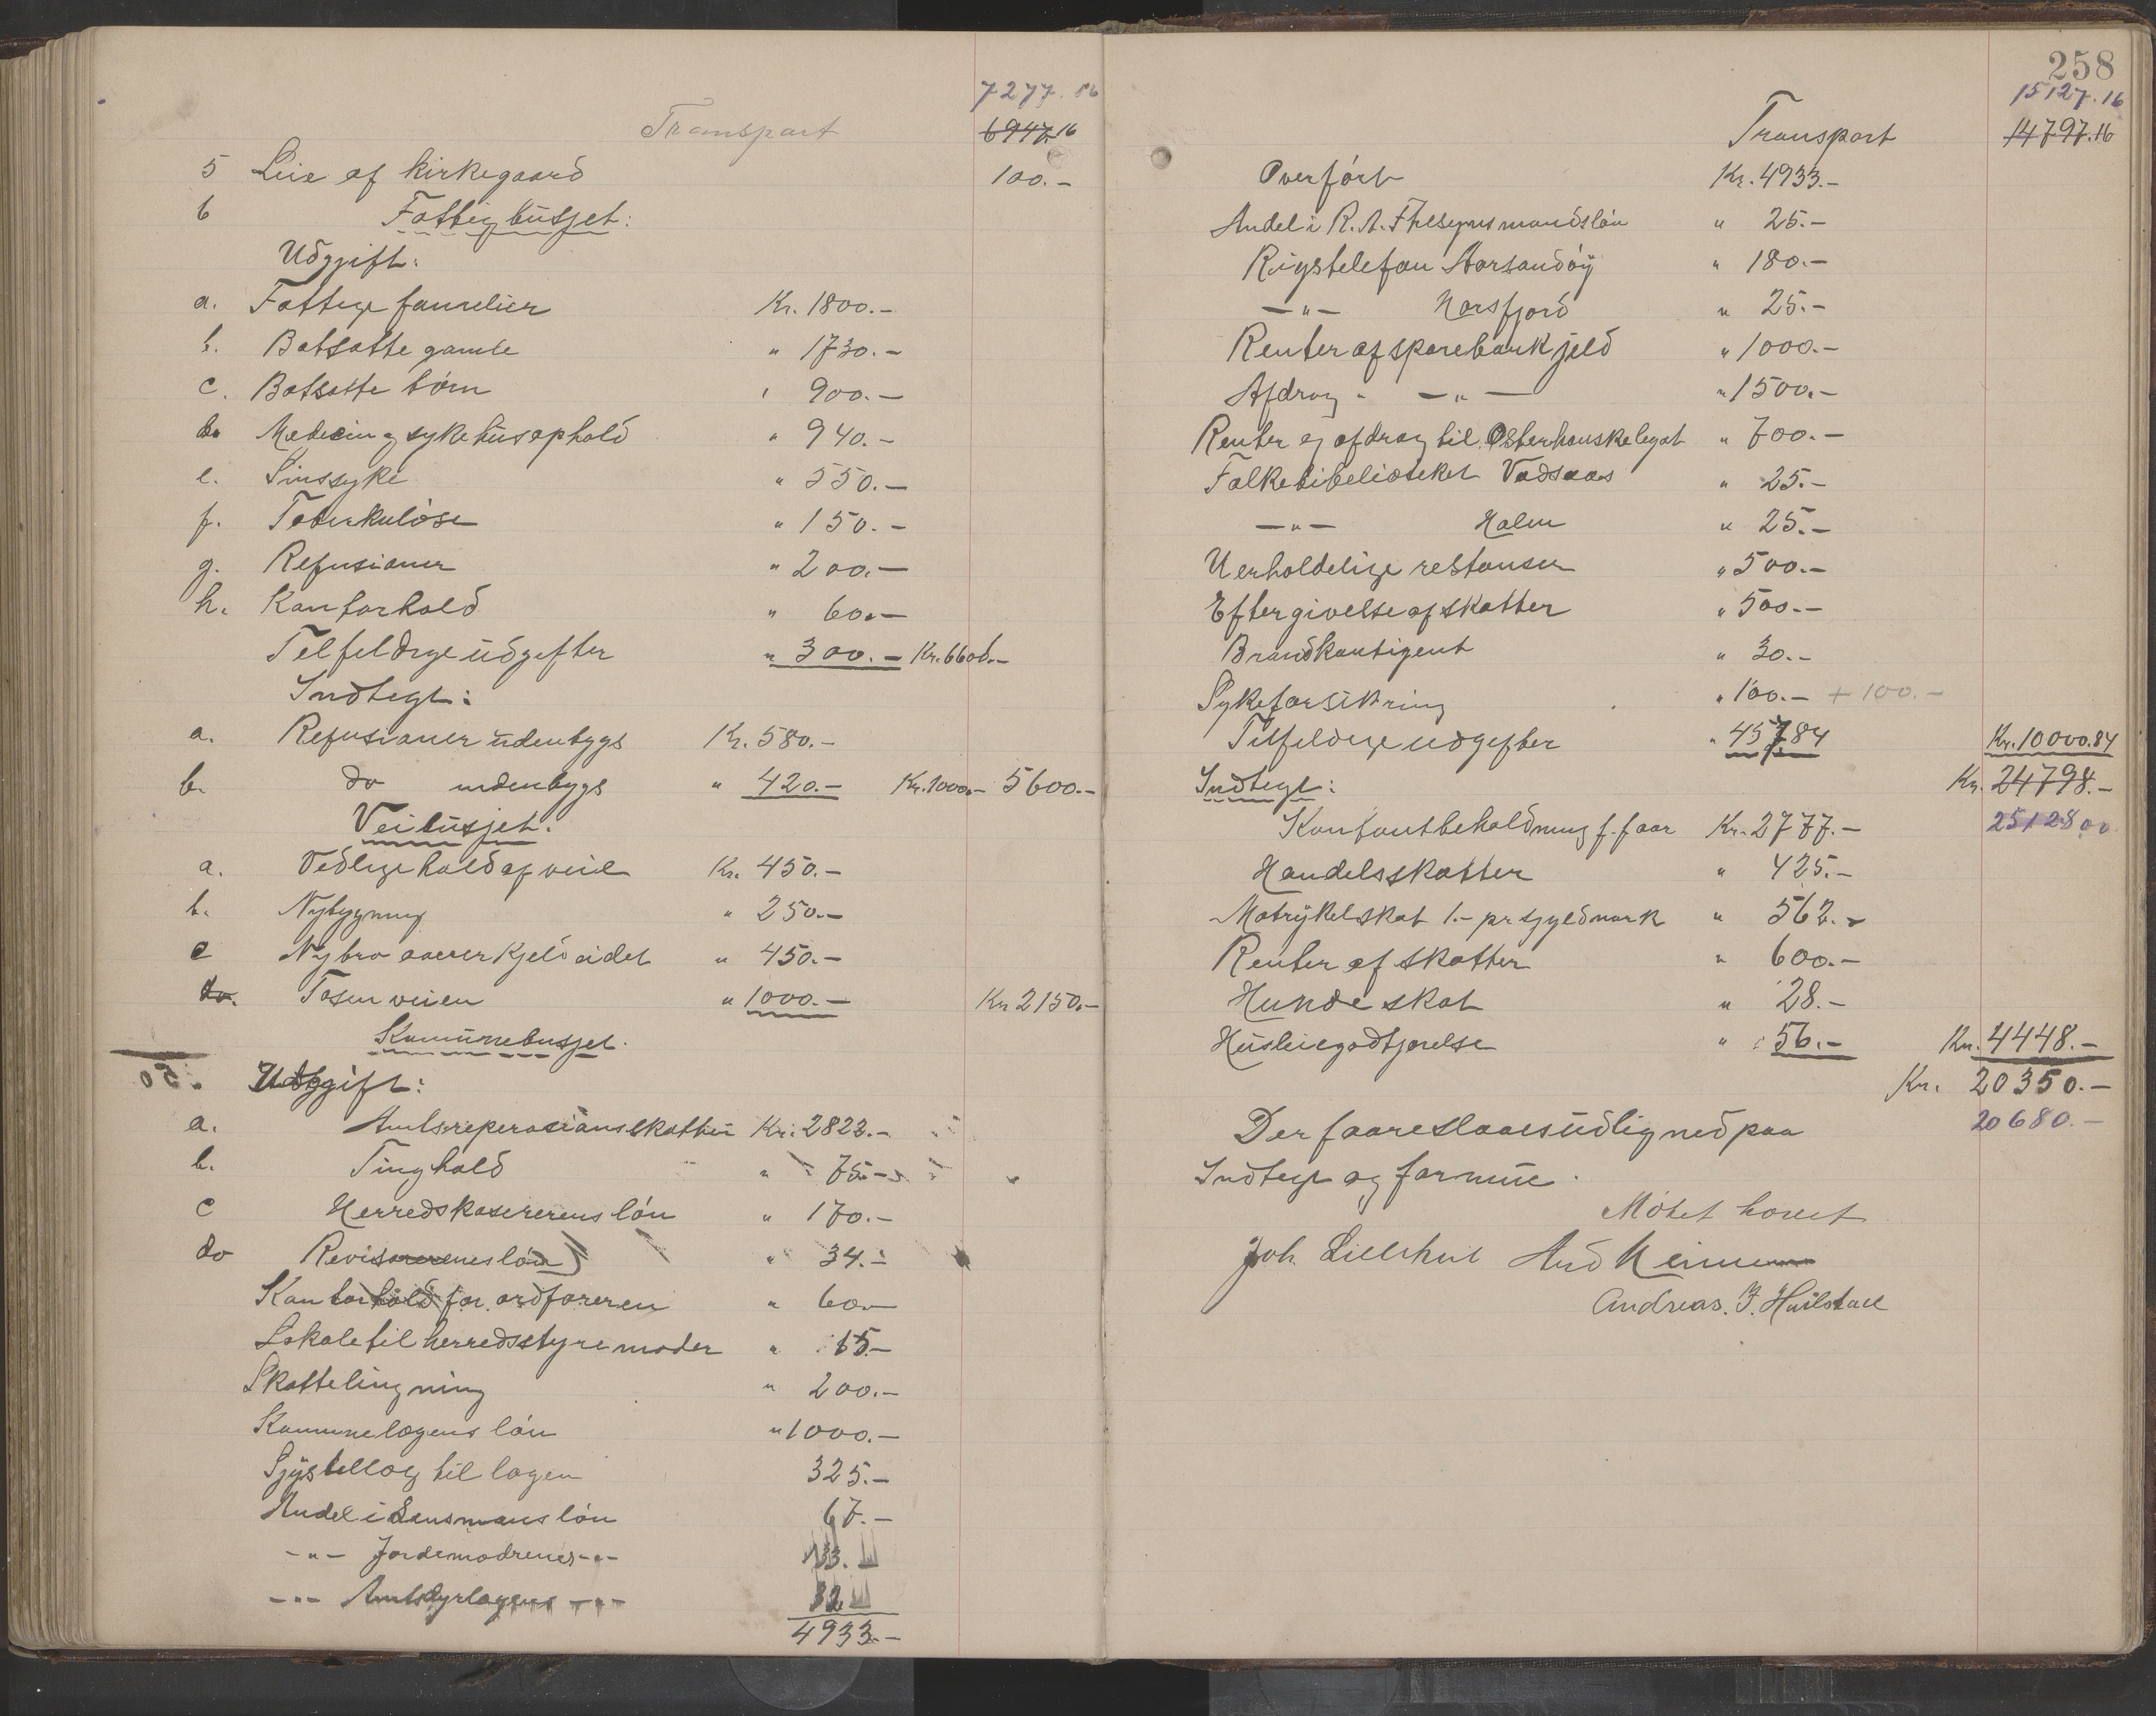 7277.86
Transport 6947.16
5 Leie af kirkegaard 100.-
6 Fattigbüsjet:
Udgift:
a. Fattige familier Kr. 1800.-
b. Botsatte gamle " 1730.-
c. Botsatte börn " 900.-
do Medecin og sykehüsophold " 940.-
e. Sinssyke " 550.-
f. Toberkulöse " 150.-
g. Refusioner " 200.-
h. Kontorhold " 60.-
Telfeldige üdgifter " 300.- Kr. 6600.-
Indtegt:
a. Refusioner üdenbygs Kr. 580.-
b. do indenbygs " 420.- Kr. 1000.- 5600.-
Veibüsjet.
a. Vedligehold af veie Kr. 450.-
b. Nybygning " 250.-
c Ny bro over Kjeldeidet " 450.-
do. Tosenveien " 1000.- Kr 2150.-
Komünebusjet.
50
Udgift:
a. Amtsreperasionsskatten Kr. 2822.-
b. Tinghold " 75.-
c Herredskasererens lön " 170.-
do Revisorenes lön " 34.-
Kontorhold for ordföreren " 60.-
Lokale til herredsstyremöder " 15.-
Skatteligning " 200.-
Kommunelægens lön " 1000.-
Sjystillæg til lægen 325.-
Andel i Lensmans lön 67.-
-"- Jordemodrenes -"- 133.
-"- Amtsdyrlægens -"- 32
4933.-
258
15127.16
Transport 14797.16
Overfört Kr. 4933.-
Andel i R. A. " 25.-
Rigstelefon Storsandöy " 180.-
-"- Horsfjord " 25.-
Renter af sparebankgjeld " 1000.-
Afdrag " -"- " 1500.-
Renter og afdrag til Osterhouskelegat " 700.-
Folkebibelioteket Vadsaas " 25.-
-"- Holm " 25.-
Uerholdelige restanser " 500.-
Eftergivelse af skatter " 500.-
Brandkontigent " 30.-
Sykeforsikring " 100.- + 100.-
Tilfeldige udgifter " 457.84 Kr. 10000.84
Kr. 24798.-
Indtegt:
Kontantbeholdning f. f. aar Kr. 2777.- 25128 00
Handelsskatter " 425.-
Matrykelskat 1.- pr skyldmark " 562.-
Renter af skatter " 600.-
Hundeskat " 28.-
Hüsleiegodtjørelse " 56.- Kr. 4448.-
Kr. 20350.-
20680.-
Der foareslaaes üdlignet paa
Indtegt og formüe.
Mötet hevet
Joh. And
Andreas. J.